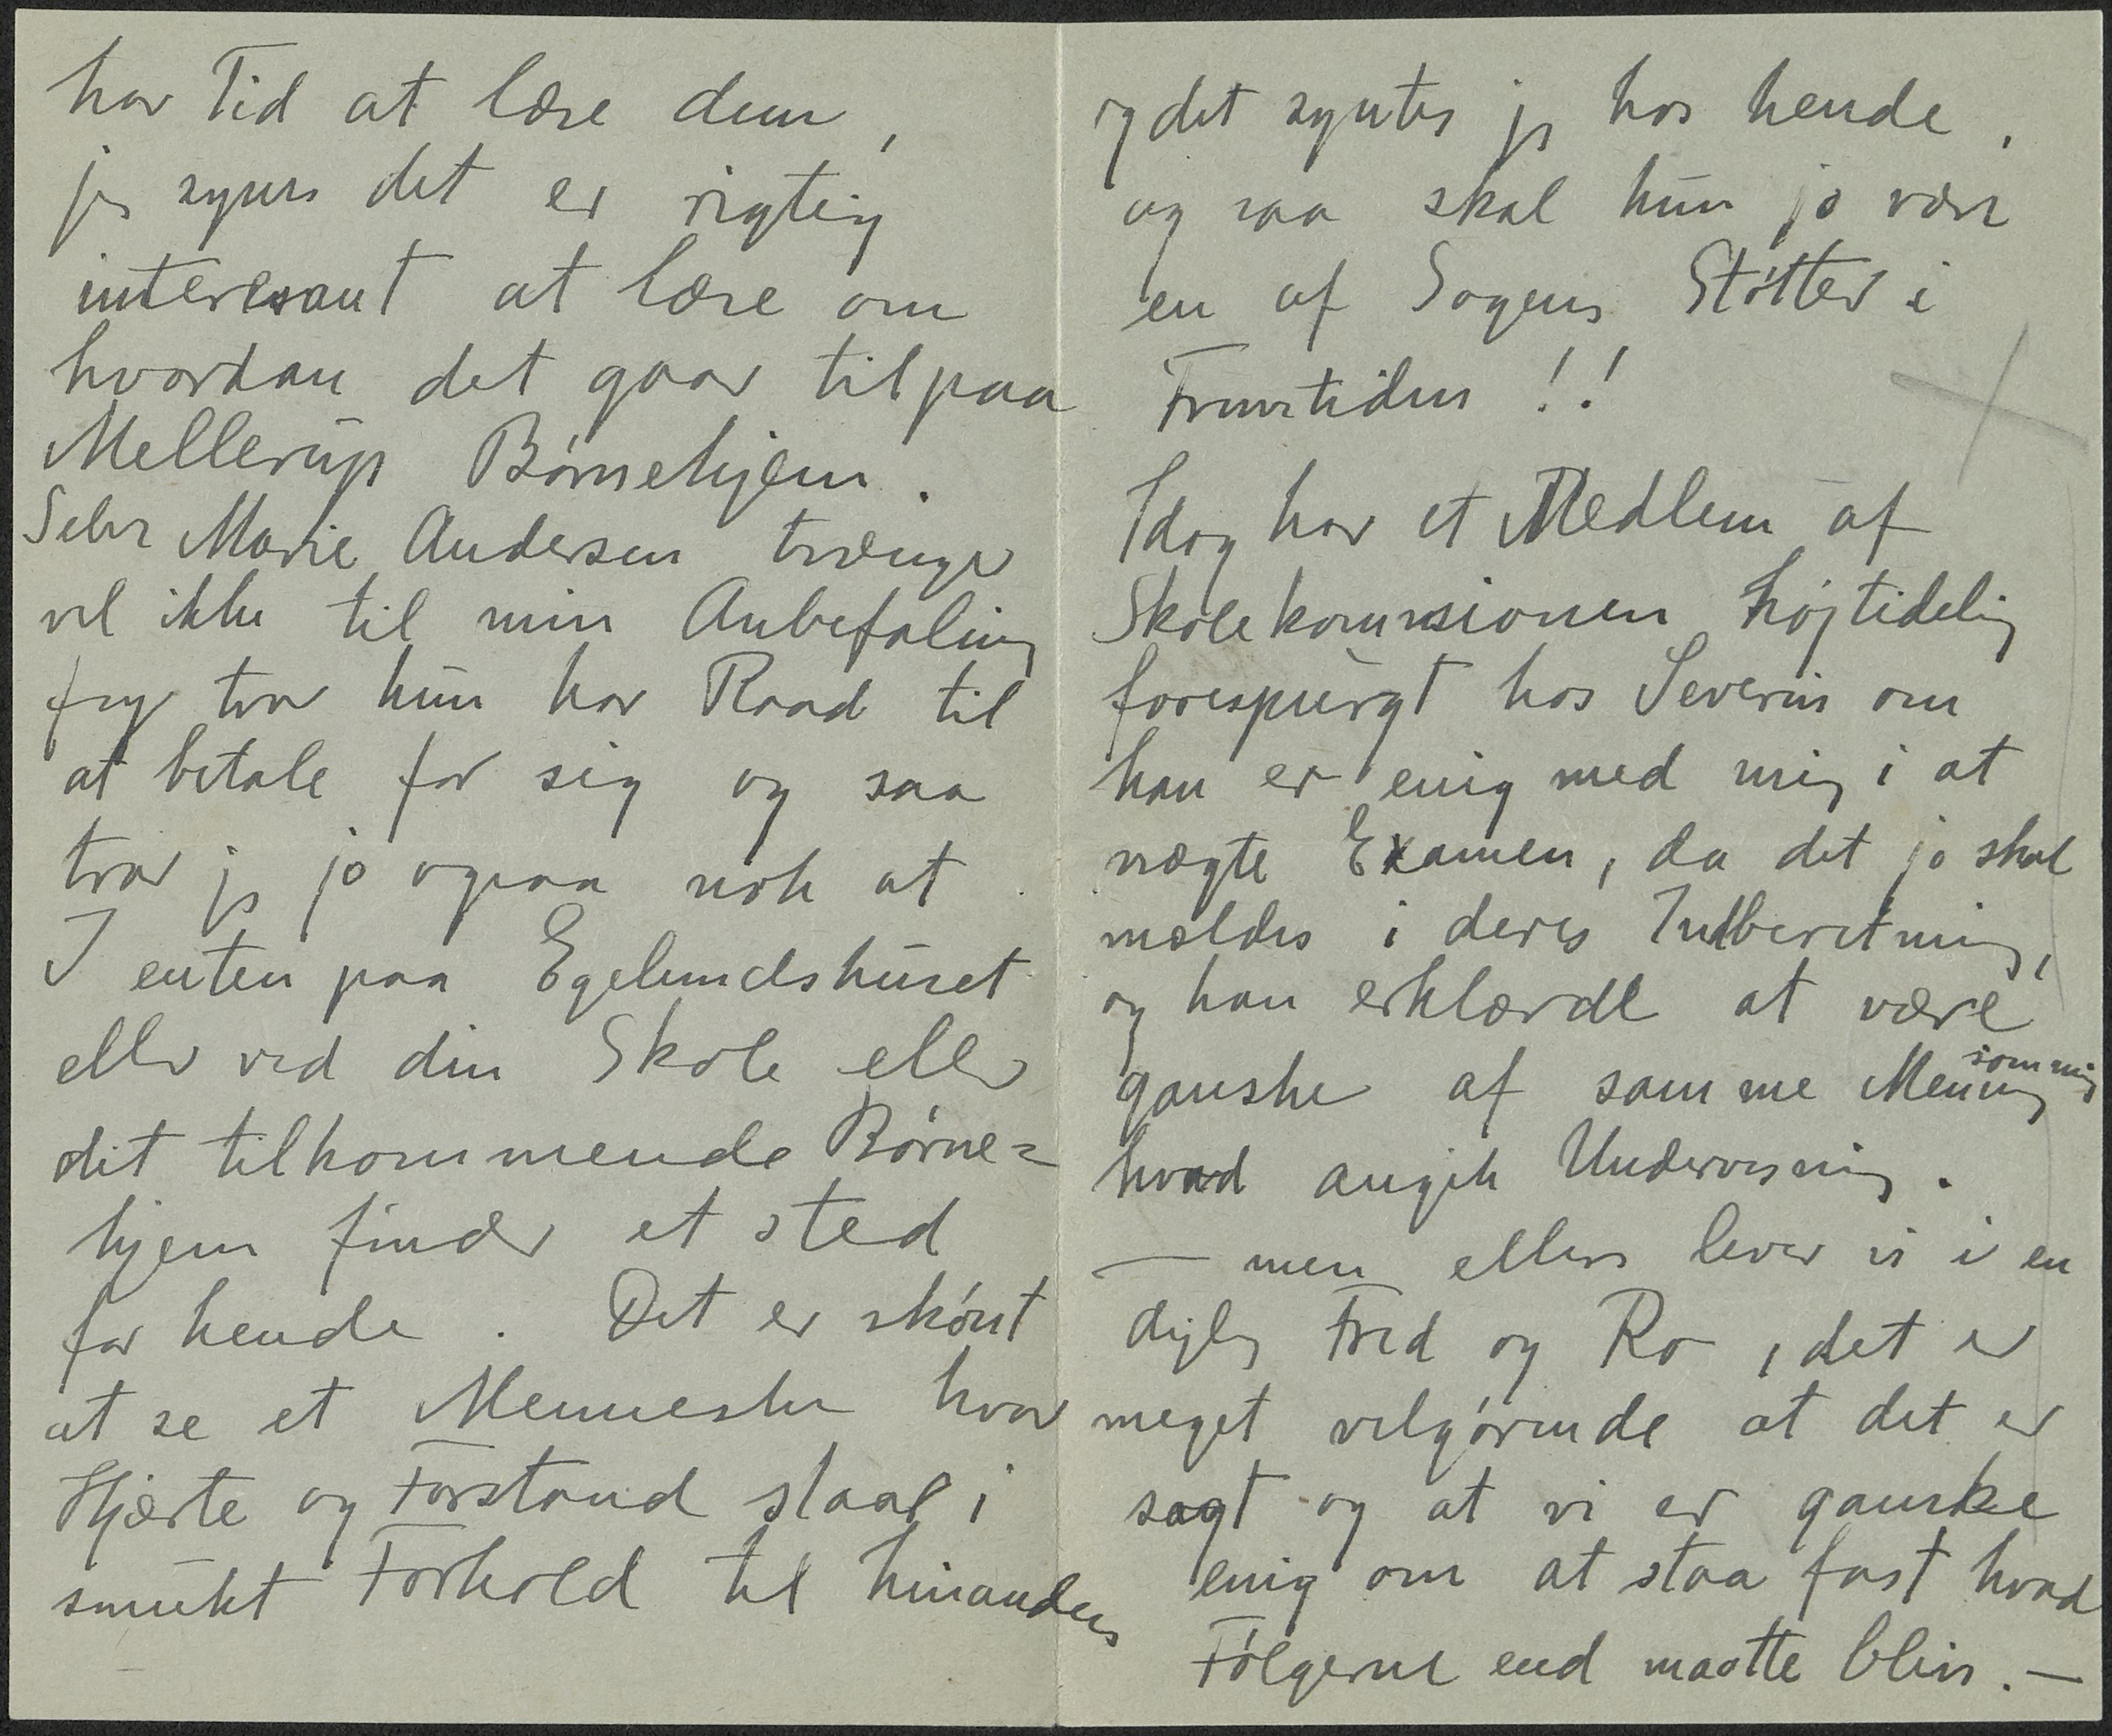 har Tid at læse dem,
jeg synes det er rigtig
interesant at læse om
hvordan det gaar til paa
Mellerup Børnehjem.
Selve Marie Andersen trænger
vel ikke til min Anbefaling
jeg tror hun har Raad til
at betale for sig og saa
tror jeg jo ogsaa nok at
I enten paa Egelundshuset
eller ved din Skole eller
dit tilkommende Børne=
hjem finder et sted
for hende. Det er skønt
at se et Menneske hvor
Hjærte og Forstand staar i
smukt Forhold til hinanden
og det syntes jeg hos hende,
og saa skal hun jo være
en af Sagens Støtter i
Fremtiden!!
Idag har et Medlem af
Skolekommsionen højtidelig
forespurgt hos Severin om
han er enig med mig i at
nægte Examen, da det jo skal
meldes i deres Indberetning,
og han erklærde at være
ganske af samme Mening som mig
hvad angik Undervisning.
— men ellers lever vi i en
dejlig Fred og Ro, det er
meget velgørende at det er
sagt og at vi er ganske
enig om at staa fast hvad
Følgerne end maatte blive. —